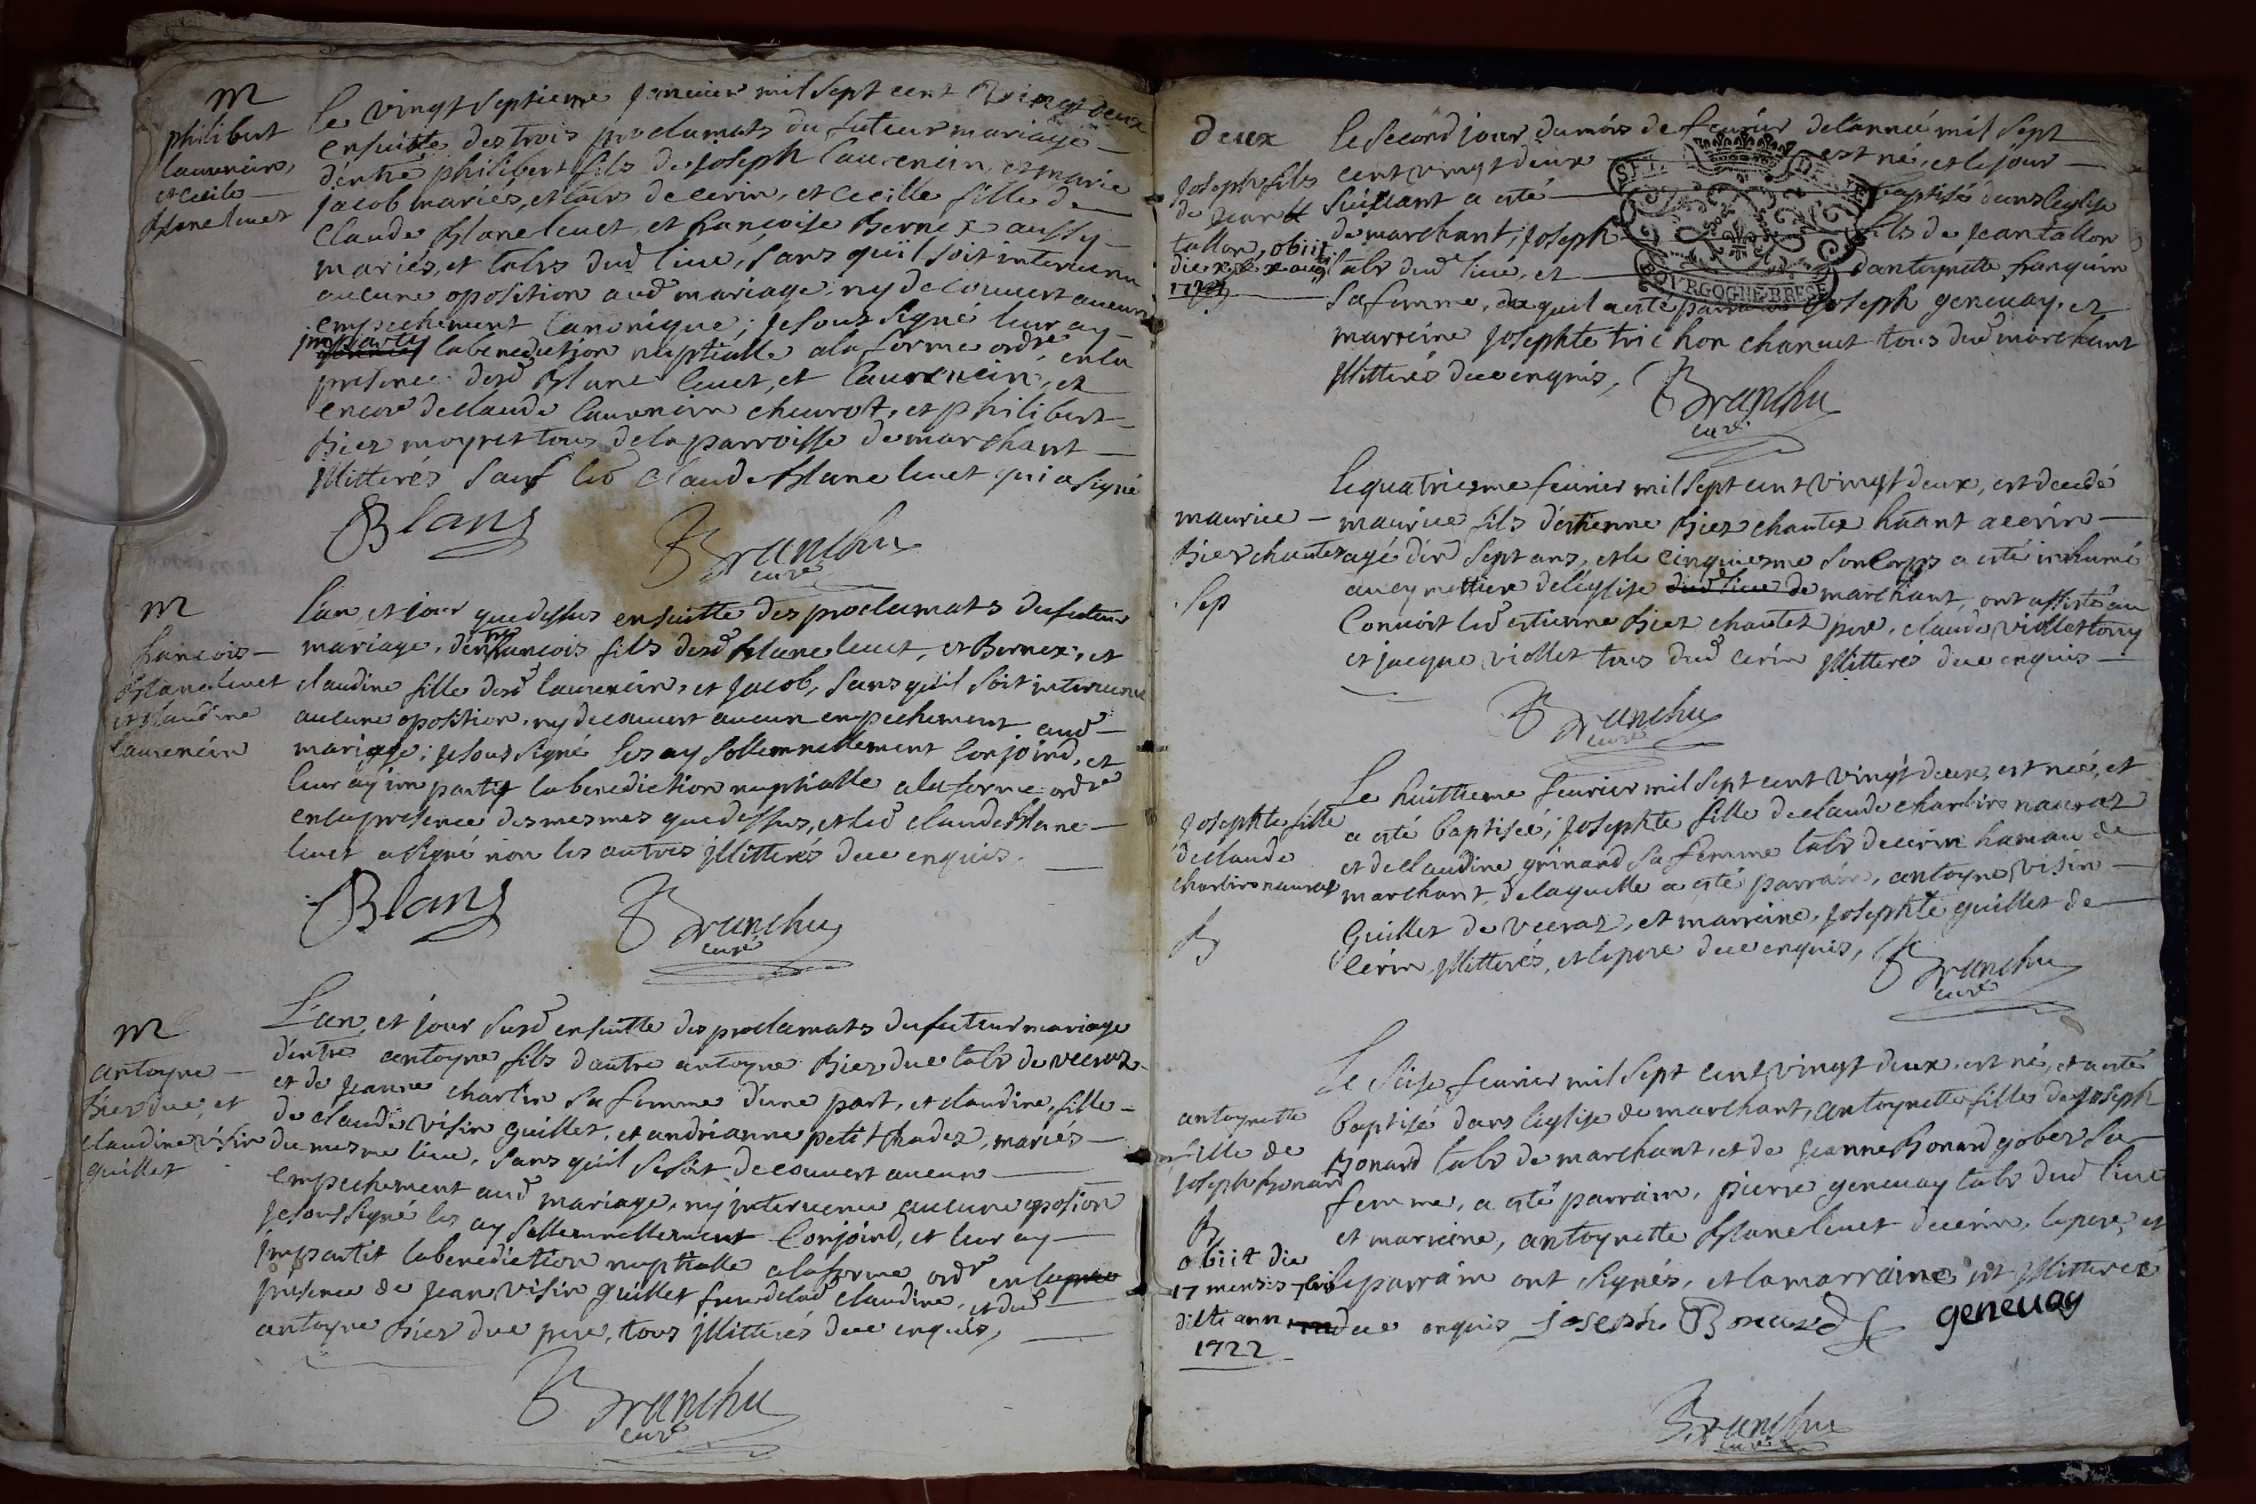 m
philibert
laurencin,
et cecile
blanc luuet
le vingt septieme janvier mil sept cent vingt deux
ensuitte des trois proclamats du futeur mariage
d'entre philibert fils de joseph laurencin, et marie
jacob mariés, et labrs de cerin, et cecille fille de
claude blanc luuet, et francoise bernex aussy
mariés, et labrs dud lieu, sans quil soit intervenu
aucune oposition aud mariage, ny decouvert aucun
empechement canonique; je soussigné leur ay
imparty la benediction nuptialle a la forme ordre, en la
presence desd blanc luuet, et laurencin, et
encore de claude laurencin cheurot, et philibert
biez moyret tous de la parroisse de marchant
illitterés sauf led claude blanc luuet qui a signé
Blanc
Branchu
curé
m
francois
blanc luuet
et claudine
laurencin
L'an, et jour que dessus ensuitte des proclamats du futeur
mariage, d'entre francois fils desd blanc luuet, et bernex, et
claudine fille desd laurencin, et jacob, sans quil soit intervenu
aucune oposition, ny decouvert aucun empechement aud
mariage; je soussigné les ay sollemnellement conjoind, et
leur ay imparty la benediction nuptialle a la forme ordre
en la presence des mesmes que dessus, et led claude blanc
luuet a signé non les autres illitterés duë enquis.
Blanc
Branchu
curé
m
antoyne
biez duc, et
claudine visin
guillet
L'an, et jour susd ensuitte des proclamats du futeur mariage
d'entre antoyne fils d'autre antoyne biez duc labr de veeraz
et de jeanne charlin sa femme d'une part, et claudine, fille
de claude visin guillet, et andrianne petit hadez, mariés
du mesme lieu, sans quil se soit decouvert aucun
empechement aud mariage, ny intervenu aucune oposion
je soussigné les ay sollemnellement conjoind, et leur ay
impartit la benediction nuptialle a la forme ordre en la
presence de jean visin guillet de lad claudine, et dud
antoyne biez duc pere, tous illitterés duë enquis,
Branchu
curé
deux
joseph fils
de jean
tallon, obiit
die
le second jour du mois de feurier de l'année mil sept
cent vingt deux est né, et le jour
suiuant a esté baptisé dans l'eglise
de marchant, joseph fils de jean tallon
labr dud lieu, et d'antoynette franquin
sa femme, duquel a esté parrain joseph geneuay, et
marreine josephte trichon chanuet tous dud marchant
illitterés duë enquis,
BOVRGOGNE BRESSE
Branchu
curé
maurice
biez chautez
Sep
le quatriesme feurier mil sept cent vingt deux, est decedé
maurice fils d'estienne biez chautez hãant a cerin
agé d'ix sept ans, et le cinquiesme son corps a esté inhumé
au cymettiere de l'eglise dud lieu de marchant, ont assisté au
conuoit led estienne biez chautez pere, claude viollet tony
et jacque viollet tous dud cerin illitterés duë enquis
Branchu
curé
josephte fille
de claude
charlin nauraz
B
Le huittieme feurier mil sept cent vingt deux, est née, et
a esté baptisée; josephte fille de claude charlin nauraz
et de claudine grinand sa femme labr de cerin hamau de
marchant, de laquelle a esté parrain, antoyne visin
guillet de veeraz, et marreine, josephte guillet de
cerin, illitterés, et le pere duë enquis,
Branchu
curé
antoynette
fille de
joseph bonard
B
obiit die
17 mensis
dicti anni
1722
Le seise feurier mil sept cent vingt deux est né, et a esté
baptisé dans l'eglise de marchant, antoynette fille de joseph
bonard labr de marchant, et de jeanne bonard gober sa
femme, a esté parrain, pierre geneuay labr dud lieu
et marreine, antoynette blanc luuet de cerin, le pere, et
le parrain ont signés, et la marraine est illitteréé
duë enquis joseph Bonard geneuay
Branchu
curé